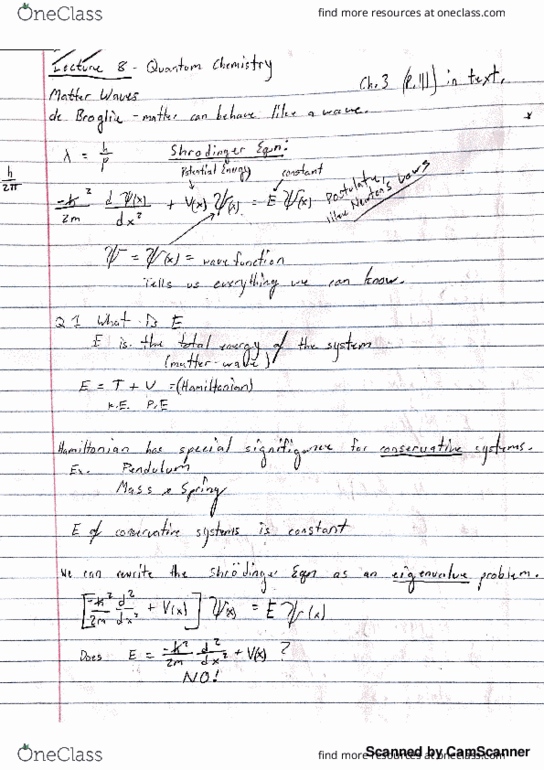 OneClass find more resources at oneclass.com
Lecture 8 - Quantum Chemistry
Ch. 3 (P. 111) in text.
Matter Waves
de Broglie - matter can behave like a wave.
λ = h/p Shrodinger Eqn:
Potential Energy constant
h/2π
-ħ²/2m d²Ψ(x)/dx² + V(x) Ψ(x) = E Ψ(x) Postulate, like Newton's Laws
Ψ = Ψ(x) = wave function
Tells us everything we can know.
Q1 What is E
E is the total energy of the system
(matter-wave)
E = T + V = (Hamiltonian)
K.E. P.E
Hamiltonian has special signifigance for conservative systems.
Ex. Pendulum
Mass & Spring
E of conservative systems is constant
We can rewrite the Shrödinger Eqn as an eigenvalue problem.
[-ħ²/2m d²/dx² + V(x)] Ψ(x) = E Ψ(x)
Does E = -ħ²/2m d²/dx² + V(x) ?
NO!
OneClass find more resources at oneclass.com
Scanned by CamScanner